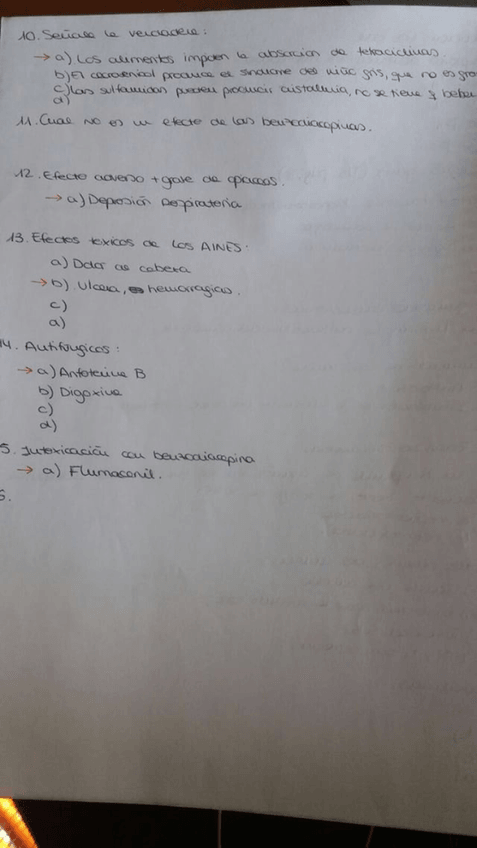 10. Señale la verdadera:
→ a) Los alimentos impiden la absorción de tetraciclinas.
b) El cloranfenicol produce el síndrome del niño gris, que no es gra
c) Las sulfamidas pueden producir cristaluria, no se tiene q beber
d)
11. Cual no es un efecto de las benzodiacepinas.
12. Efecto adverso + grave de opiaceos.
→ a) Depresión Respiratoria
13. Efectos toxicos de los AINES:
a) Dolor de cabeza
→ b) Ulcera, hemorragias.
c)
d)
14. Antifúngicos:
→ a) Anfotericina B
b) Digoxina
c)
d)
5. Intoxicación con benzodiacepina
→ a) Flumacenil.
6.